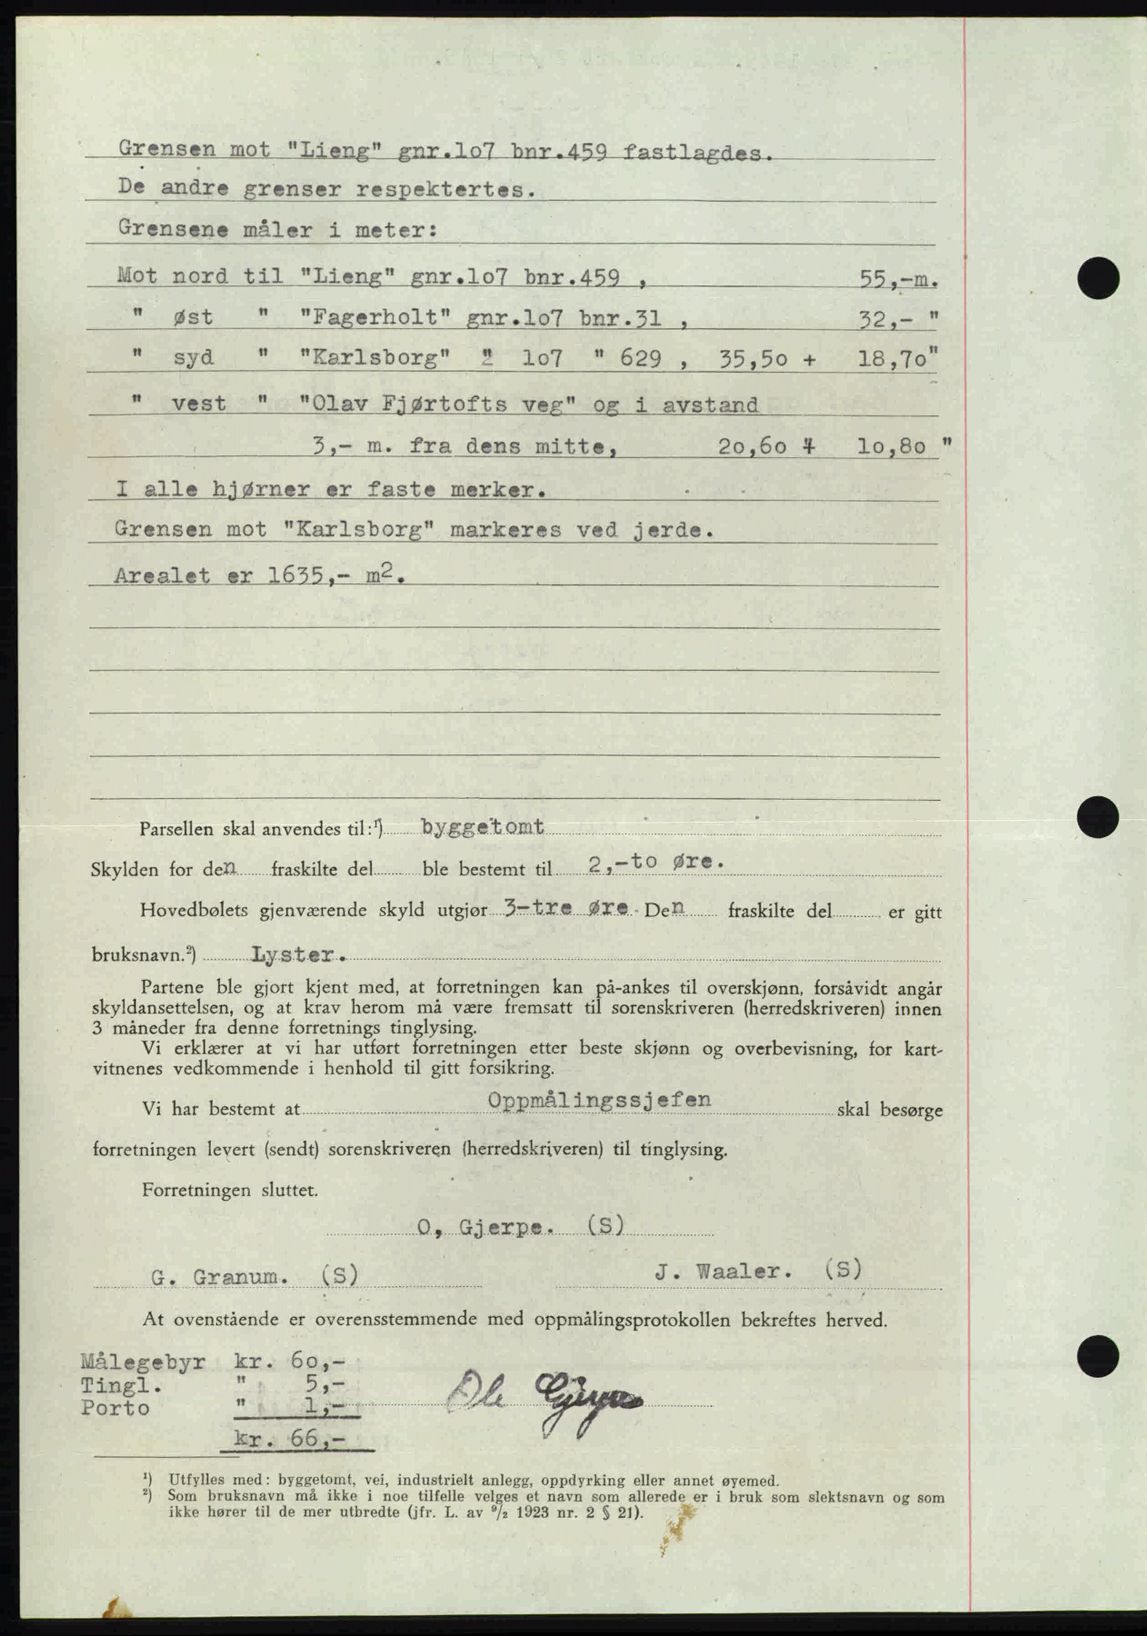 Grensen mot "Lieng" gnr.lo7 bnr.459 fastlagdes.
De andre grenser respektertes.
Grensene måler i meter:
Mot nord til "Lieng" gnr.lo7 bnr.459 , 55,-m.
" øst " "Fagerholt" gnr.lo7 bnr.31 , 32,- "
" syd " "Karlsborg" " lo7 " 629 , 35,5o + 18,7o"
" vest " "Olav Fjørtofts veg" og i avstand
3,- m. fra dens mitte, 2o,6o + lo,8o "
I alle hjørner er faste merker.
Grensen mot "Karlsborg" markeres ved jerde.
Arealet er 1635,- m2.
Parsellen skal anvendes til:¹) byggetomt
Skylden for den fraskilte del ble bestemt til 2,-to øre.
Hovedbølets gjenværende skyld utgjør 3-tre øre. Den fraskilte del er gitt
bruksnavn.²) Lyster.
Partene ble gjort kjent med, at forretningen kan på-ankes til overskjønn, forsåvidt angår
skyldansettelsen, og at krav herom må være fremsatt til sorenskriveren (herredskriveren) innen
3 måneder fra denne forretnings tinglysing.
Vi erklærer at vi har utført forretningen etter beste skjønn og overbevisning, for kart-
vitnenes vedkommende i henhold til gitt forsikring.
Vi har bestemt at Oppmålingssjefen skal besørge
forretningen levert (sendt) sorenskriveren (herredskriveren) til tinglysing.
Forretningen sluttet.
O, Gjerpe. (S)
G. Granum. (S) J. Waaler. (S)
At ovenstående er overensstemmende med oppmålingsprotokollen bekreftes herved.
Målegebyr kr. 6o,-
Tingl. " 5,-
Porto " 1,-
Ole Gjerpe
kr. 66,-
¹) Utfylles med: byggetomt, vei, industrielt anlegg, oppdyrking eller annet øyemed.
²) Som bruksnavn må ikke i noe tilfelle velges et navn som allerede er i bruk som slektsnavn og som
ikke hører til de mer utbredte (jfr. L. av 9/2 1923 nr. 2 § 21).